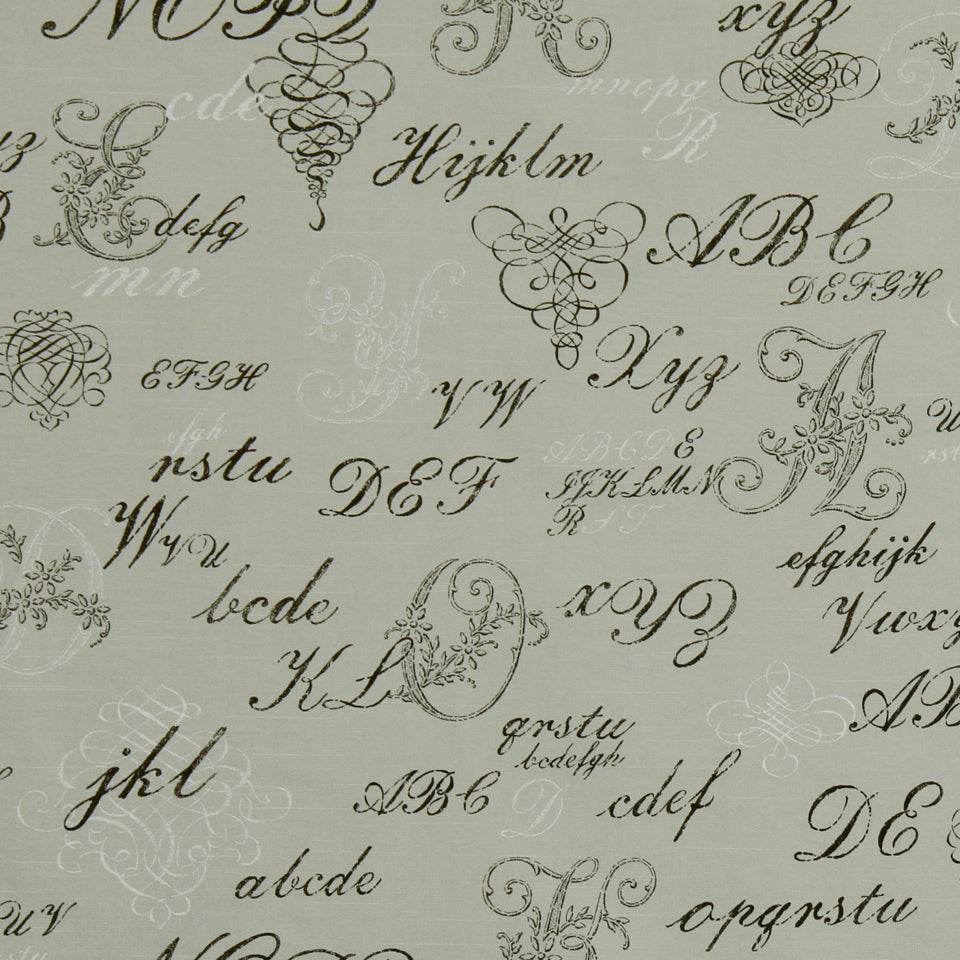 NOPQ
xyz
cde
mnopq
R
yz
Hijklm
defg
ABC
mn
DEFGH
EFGH
Xyz
VW
efgh
rstu
ABCDE
IJKLMN
RST
DEF
WVU
efghijk
bcde
XYZ
Vwxy
KL
AB
qrstu
bcdefgh
jkl
ABC
D
cdef
DE
abcde
UV
opqrstu